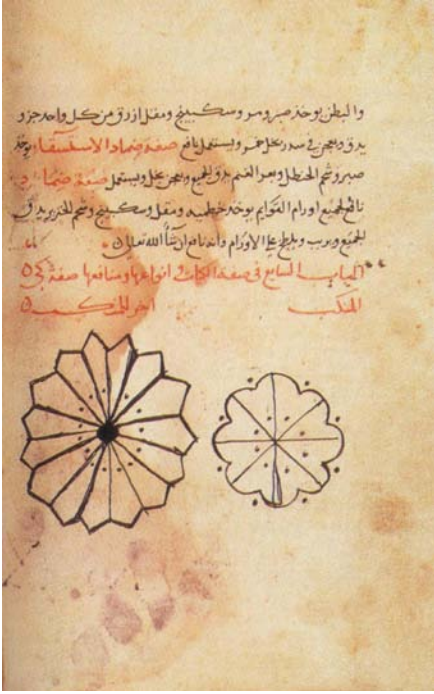 والبطن يوخذ صبر ومر وسكبينج ومقل ازرق من كل واحد جزو
يدق ويعجن في سدر بخل خمر ويستعمل نافع صفة ضماد الاستسقاء يوخذ
صبر وشحم الحنظل وبعر الغنم يدق الجميع ويعجن بخل ويستعمل صفة ضماد
نافع لجميع اورام القوايم يوخذ خطميه ومقل وسكبينج وشحم الخنزير يدق
الجميع ويريب ويلطخ على الاورام فانه نافع ان شا الله تعالى
الباب السابع في صفة الكيات وانواعها ومنافعها صفة كي
المنكب اخر للمنكب